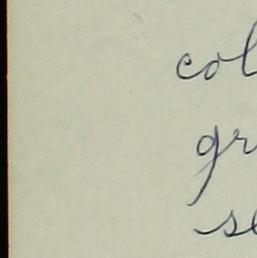 col
gr
se